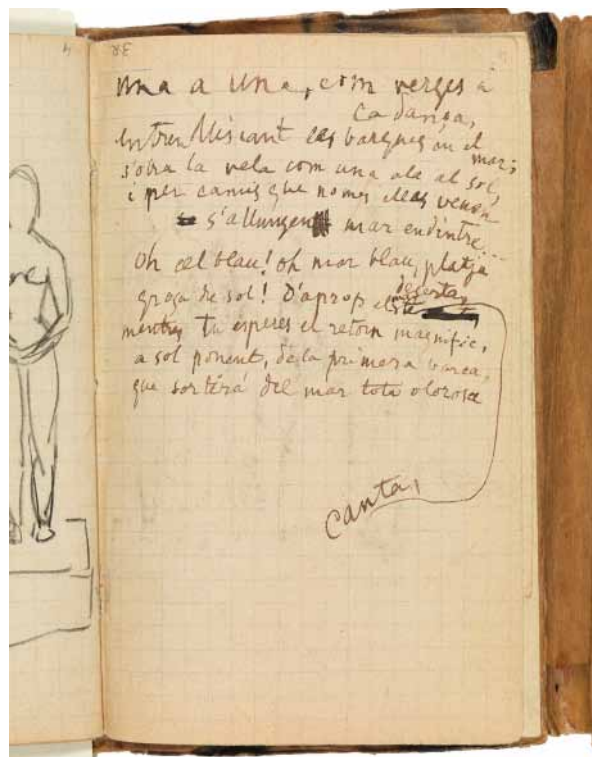 una a una, com verges a
la dança,
entren lliscant les barques en el
mar;
s'obra la vela com una ala al sol,
i per camins que nomes elles veuen
s'allunyen mar endintre...
Oh cel blau! oh mar blau, platja
deserta,
groga de sol! D'aprop el mar te
mentres tu esperes el retorn magnific,
a sol ponent, de la primera barca,
que sortirá del mar tota olorosa
canta,